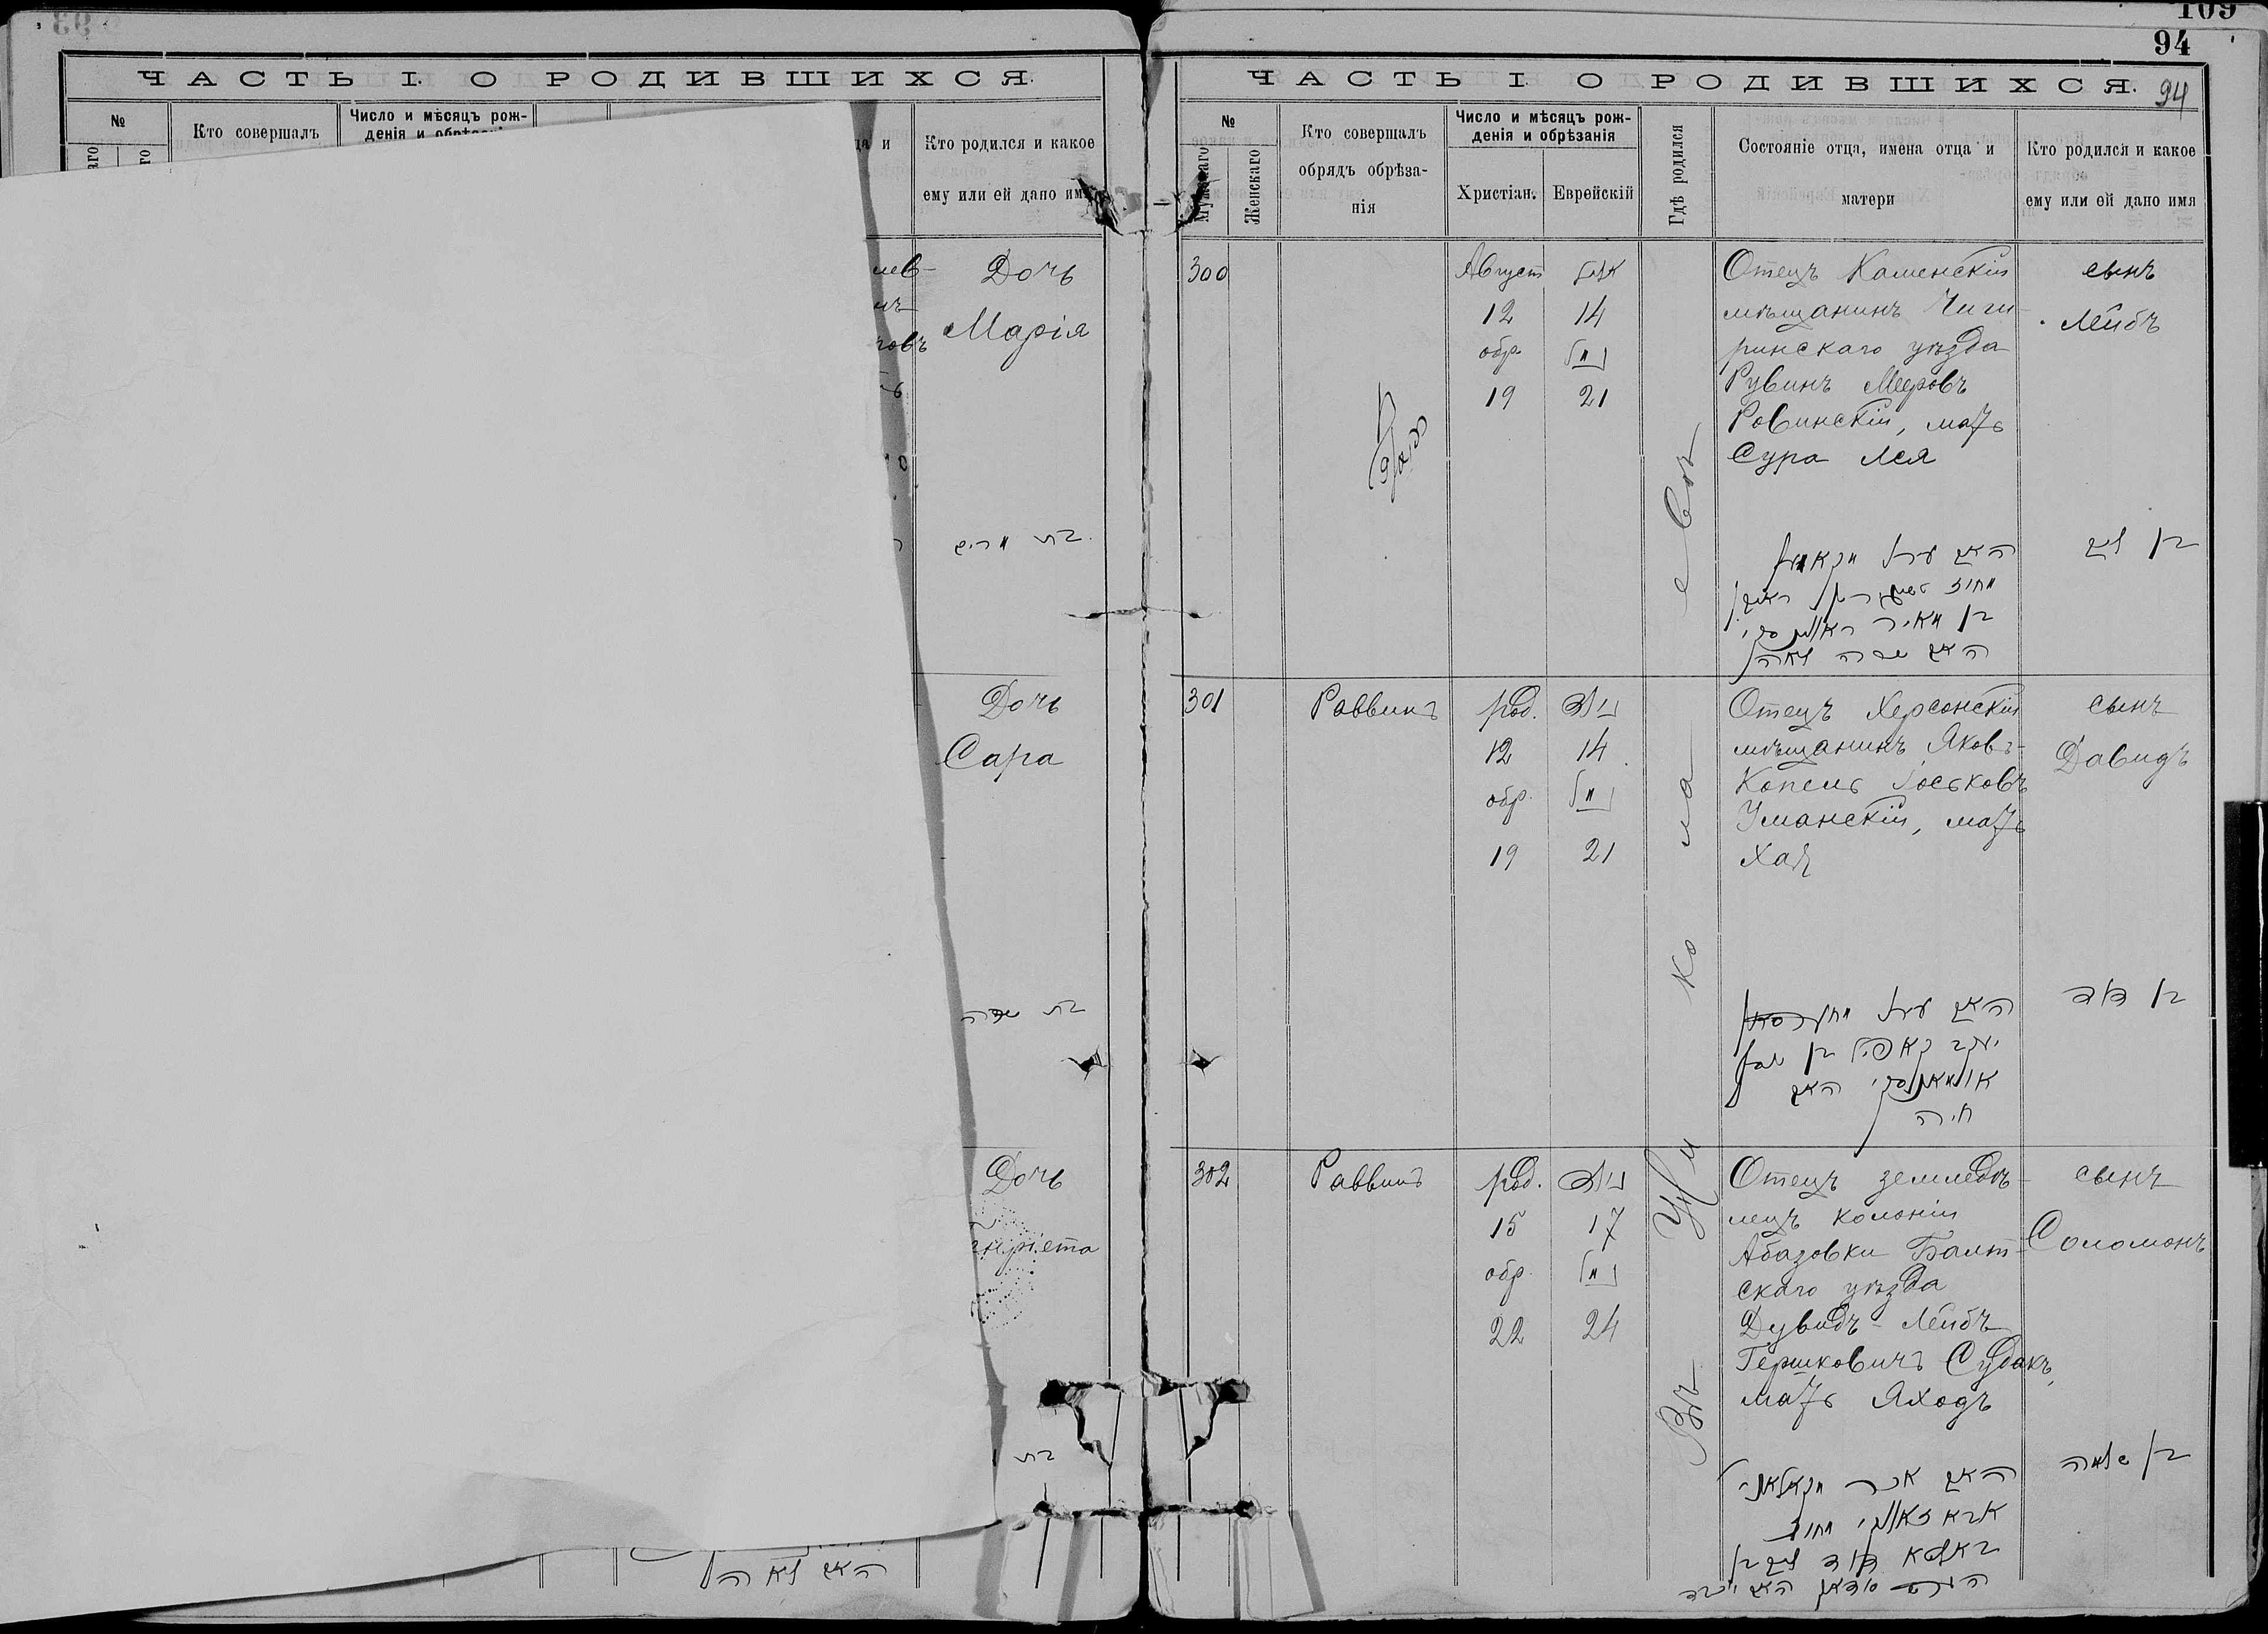 109
94
94
ЧАСТЬ I. О РОДИВШИХСЯ.
№
Кто совершалъ
Число и мѣсяцъ рож-
денія и
Кто родился и какое
ему или ей дано имя
Дочь
Марія
Дочь
Сара
בת שרה
Дочь
בת
האם לאה
ЧАСТЬ I. О РОДИВШИХСЯ.
№
Мужскаго
Женскаго
Кто совершалъ
обрядъ обрѣза-
нія
Число и мѣсяцъ рож-
денія и обрѣзанія
Христіан.
Еврейскій
Гдѣ родился
Состояніе отца, имена отца и
матери
Кто родился и какое
ему или ей дано имя
300
Август
12 14
обр.
19 21
Отецъ Каменскій
мѣщанинъ Чиги-
ринскаго уѣзда
Рувинъ Мееровъ
Ровинскій, мать
Сура Лея
сынъ
Лейбъ
בן מאיר
האם שרה לאה
בן ליב
301
Раввинъ
род.
12 14
обр.
19 21
Отецъ Херсонскій
мѣщанинъ Яковъ-
Копель Іоськовъ
Уманскій, мать
Хая
сынъ
Давидъ
יעקב קאפיל בן יוסף
אומאנסקי האם
חיה
בן דוד
302
Раввинъ
род.
15 17
обр.
22 24
Отецъ земледѣ-
лецъ колоніи
Абазовки Балт-
скаго уѣзда
Дувидъ-Лейбъ
Гершковичъ Судакъ,
мать Яходъ
сынъ
Соломонъ
בן שלמה
Въ
Николаевѣ